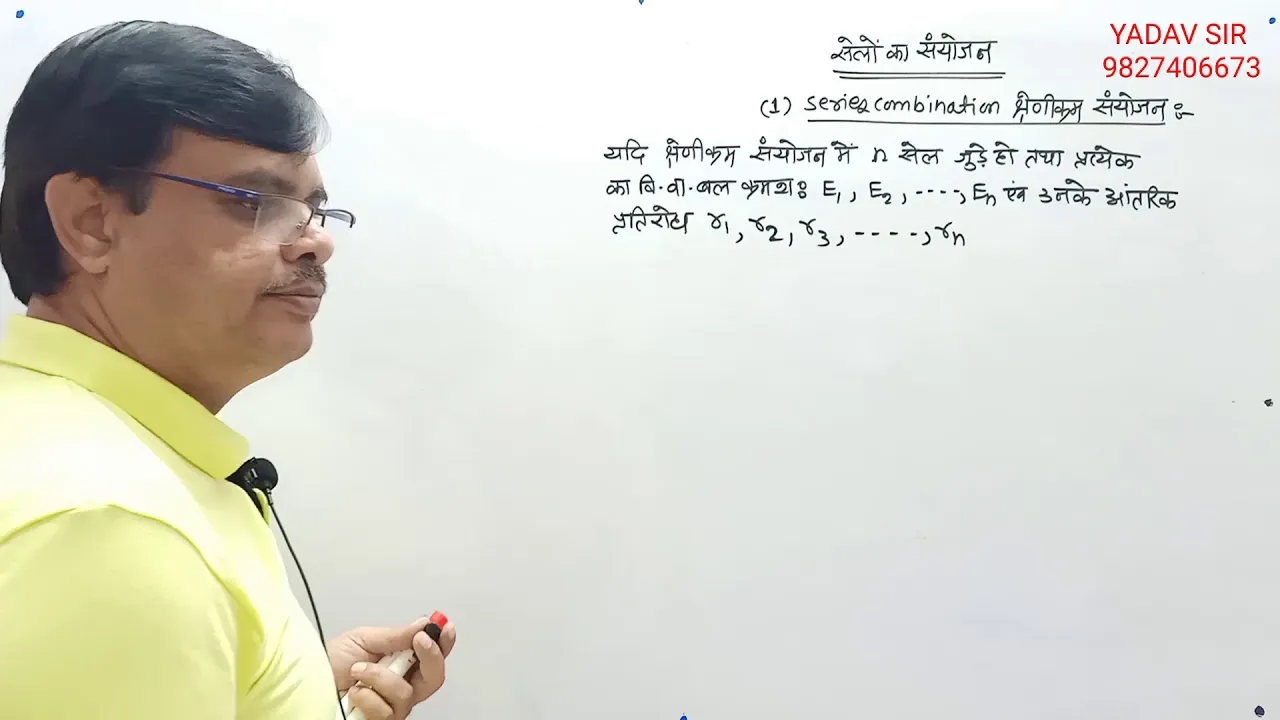 YADAV SIR
9827406673
सेलों का संयोजन
(1) series combination श्रेणीक्रम संयोजन :-
यदि श्रेणीक्रम संयोजन में n सेल जुड़े हो तथा प्रत्येक
का वि. वा. बल क्रमशः E₁, E₂, ----, Eₙ एवं उनके आंतरिक
प्रतिरोध r₁, r₂, r₃, ----, rₙ